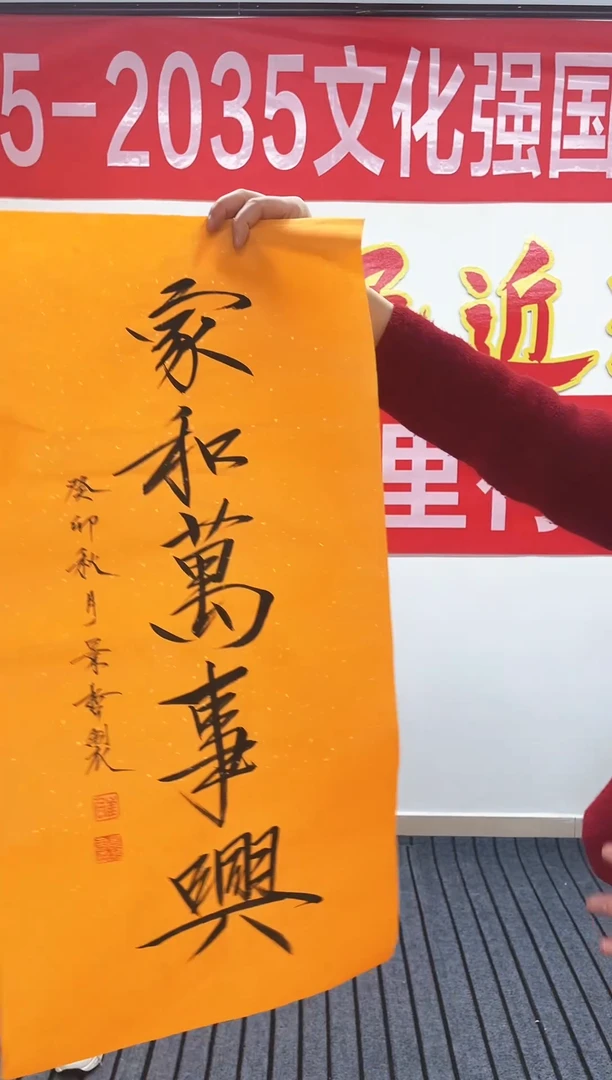 5-2035文化强国
近
里行
家和萬事興
癸卯秋月景春製